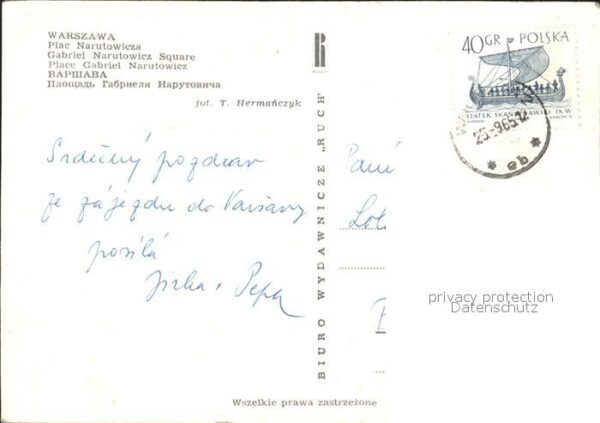 WARSZAWA
Plac Narutowicza
Gabriel Narutowicz Square
Place Gabriel Narutowicz
ВАРШАВА
Площадь Габриеля Нарутовича
fot. T. Hermańczyk
RUCH
BIURO WYDAWNICZE „RUCH"
40GR POLSKA
STATEK SKANDYNAWSKI IX W
25.-9.65.12
* eb *
Srdečný pozdrav
ze zájezdu do Varšavy
posílá
Jirka + Pepa
Paní
privacy protection
Datenschutz
Wszelkie prawa zastrzeżone